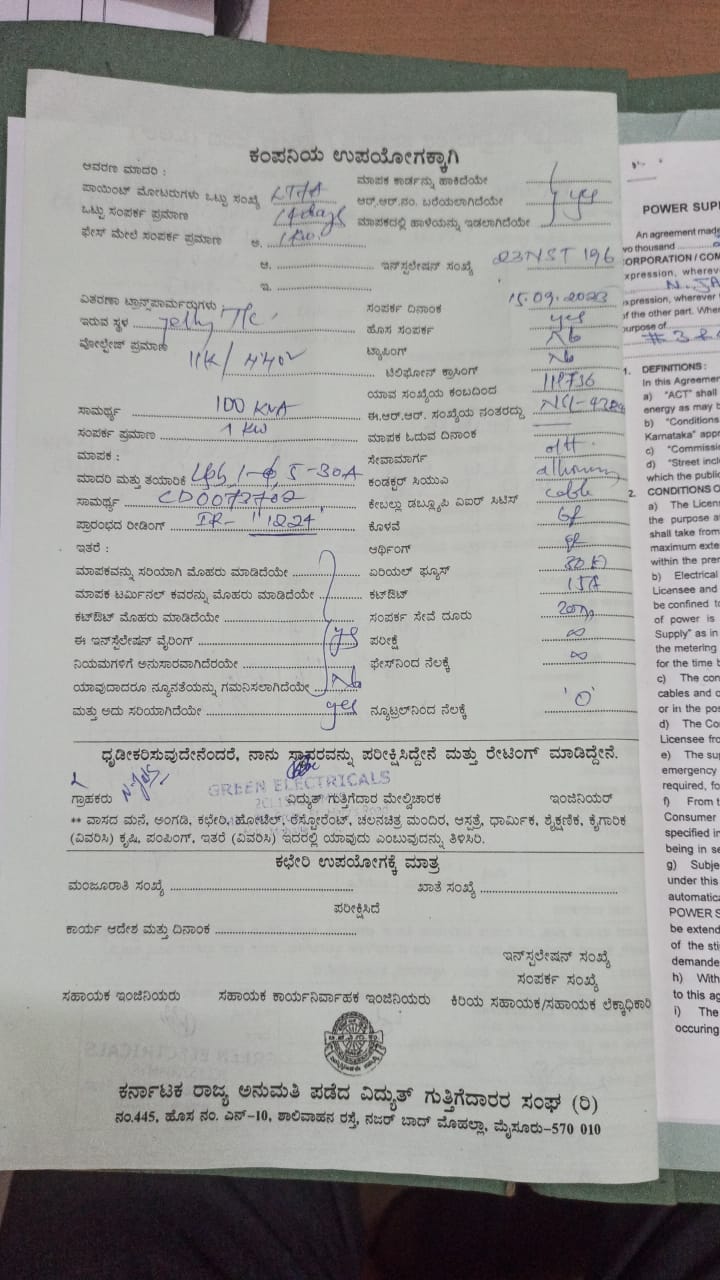 ಕಂಪನಿಯ ಉಪಯೋಗಕ್ಕಾಗಿ
ಆವರಣ ಮಾದರಿ :
ಮಾಪಕ ಕಾರ್ಡನ್ನು ಹಾಕಿದೆಯೇ
ಪಾಯಿಂಟ್ ಮೋಟರುಗಳು ಒಟ್ಟು ಸಂಖ್ಯೆ
ಆರ್.ಆರ್.ನಂ. ಬರೆಯಲಾಗಿದೆಯೇ yes
ಒಟ್ಟು ಸಂಪರ್ಕ ಪ್ರಮಾಣ
ಮಾಪಕದಲ್ಲಿ ಹಾಳೆಯನ್ನು ಇಡಲಾಗಿದೆಯೇ
ಫೇಸ್ ಮೇಲೆ ಸಂಪರ್ಕ ಪ್ರಮಾಣ ಅ. 1 Kw.
ಆ. ಇನ್‌ಸ್ಟಲೇಷನ್ ಸಂಖ್ಯೆ 23NST 196
ಇ.
ವಿತರಣಾ ಟ್ರಾನ್ಸ್‌ಫಾರ್ಮರುಗಳು
ಸಂಪರ್ಕ ದಿನಾಂಕ 15.09.2023
ಇರುವ ಸ್ಥಳ
ಹೊಸ ಸಂಪರ್ಕ yes
ವೋಲ್ಟೇಜ್ ಪ್ರಮಾಣ 11K/440V
ಟ್ಯಾಪಿಂಗ್ No
ಟೆಲಿಫೋನ್ ಕ್ರಾಸಿಂಗ್ No
ಯಾವ ಸಂಖ್ಯೆಯ ಕಂಬದಿಂದ
ಸಾಮರ್ಥ್ಯ 100 KVA
ಈ.ಆರ್.ಆರ್. ಸಂಖ್ಯೆಯ ನಂತರದ್ದು
ಸಂಪರ್ಕ ಪ್ರಮಾಣ 1 KW
ಮಾಪಕ ಓದುವ ದಿನಾಂಕ
ಮಾಪಕ :
ಸೇವಾಮಾರ್ಗ
ಮಾದರಿ ಮತ್ತು ತಯಾರಿಕೆ 5-30A
ಕಂಡಕ್ಟರ್ ಸಿಯುವಿ
ಸಾಮರ್ಥ್ಯ CD0073702
ಕೇಬಲ್ಲು ಡಬ್ಲ್ಯೂಪಿ ವಿಐರ್ ಸಿಟಿಸ್ cable
ಪ್ರಾರಂಭದ ರೀಡಿಂಗ್ IR-
ಕೊಳವೆ
ಇತರೆ :
ಆರ್ಥಿಂಗ್
ಮಾಪಕವನ್ನು ಸರಿಯಾಗಿ ಮೊಹರು ಮಾಡಿದೆಯೇ
ಏರಿಯಲ್ ಫ್ಯೂಸ್ 30 A
ಮಾಪಕ ಟರ್ಮಿನಲ್ ಕವರನ್ನು ಮೊಹರು ಮಾಡಿದೆಯೇ
ಕಟ್‌ಔಟ್ 15A
ಕಟ್‌ಔಟ್ ಮೊಹರು ಮಾಡಿದೆಯೇ
ಸಂಪರ್ಕ ಸೇವೆ ದೂರು
ಈ ಇನ್‌ಸ್ಟಲೇಷನ್ ವೈರಿಂಗ್ yes
ಪರೀಕ್ಷೆ ∞
ನಿಯಮಗಳಿಗೆ ಅನುಸಾರವಾಗಿದೆಯೇ
ಫೇಸ್‌ನಿಂದ ನೆಲಕ್ಕೆ ∞
ಯಾವುದಾದರೂ ನ್ಯೂನತೆಯನ್ನು ಗಮನಿಸಲಾಗಿದೆಯೇ No
ಮತ್ತು ಅದು ಸರಿಯಾಗಿದೆಯೇ yes
ನ್ಯೂಟ್ರಲ್‌ನಿಂದ ನೆಲಕ್ಕೆ '0'
ಧೃಡೀಕರಿಸುವುದೇನೆಂದರೆ, ನಾನು ಸ್ಥಾವರವನ್ನು ಪರೀಕ್ಷಿಸಿದ್ದೇನೆ ಮತ್ತು ರೇಟಿಂಗ್ ಮಾಡಿದ್ದೇನೆ.
GREEN ELECTRICALS
ಗ್ರಾಹಕರು ವಿದ್ಯುತ್ ಗುತ್ತಿಗೆದಾರ ಮೇಲ್ವಿಚಾರಕ ಇಂಜಿನಿಯರ್
** ವಾಸದ ಮನೆ, ಅಂಗಡಿ, ಕಛೇರಿ, ಹೋಟೆಲ್, ರೆಸ್ಟೋರೆಂಟ್, ಚಲನಚಿತ್ರ ಮಂದಿರ, ಆಸ್ಪತ್ರೆ, ಧಾರ್ಮಿಕ, ಶೈಕ್ಷಣಿಕ, ಕೈಗಾರಿಕ
(ವಿವರಿಸಿ) ಕೃಷಿ, ಪಂಪಿಂಗ್, ಇತರೆ (ವಿವರಿಸಿ) ಇದರಲ್ಲಿ ಯಾವುದು ಎಂಬುವುದನ್ನು ತಿಳಿಸಿರಿ.
ಕಛೇರಿ ಉಪಯೋಗಕ್ಕೆ ಮಾತ್ರ
ಮಂಜೂರಾತಿ ಸಂಖ್ಯೆ ಖಾತೆ ಸಂಖ್ಯೆ
ಪರೀಕ್ಷಿಸಿದೆ
ಕಾರ್ಯ ಆದೇಶ ಮತ್ತು ದಿನಾಂಕ
ಇನ್‌ಸ್ಟಲೇಷನ್ ಸಂಖ್ಯೆ
ಸಂಪರ್ಕ ಸಂಖ್ಯೆ
ಸಹಾಯಕ ಇಂಜಿನಿಯರು ಸಹಾಯಕ ಕಾರ್ಯನಿರ್ವಾಹಕ ಇಂಜಿನಿಯರು ಕಿರಿಯ ಸಹಾಯಕ/ಸಹಾಯಕ ಲೆಕ್ಕಾಧಿಕಾರಿ
ಕರ್ನಾಟಕ ರಾಜ್ಯ ಅನುಮತಿ ಪಡೆದ ವಿದ್ಯುತ್ ಗುತ್ತಿಗೆದಾರರ ಸಂಘ (ರಿ)
ನಂ.445, ಹೊಸ ನಂ. ಎನ್-10, ಶಾಲಿವಾಹನ ರಸ್ತೆ, ನಜರ್ ಬಾದ್ ಮೊಹಲ್ಲಾ, ಮೈಸೂರು-570 010
POWER SUPP
An agreement made
wo thousand
ORPORATION / COM
xpression, wherev
xpression, wherever
of the other part. Wher
urpose of
1. DEFINITIONS :
In this Agreemer
a) "ACT" shall
energy as may b
b) "Conditions
Karnataka" appr
c) "Commissio
d) "Street incl
which the public
2. CONDITIONS O
a) The Licens
the purpose a
shall take from
maximum exte
within the prer
b) Electrical
Licensee and
be confined to
of power is
Supply" as in
the metering
for the time b
c) The con
cables and c
or in the pos
d) The Co
Licensee fro
e) The sup
emergency
required, fo
f) From t
Consumer
specified in
being in se
g) Subje
under this
automatica
POWER S
be extend
of the sti
demande
h) With
to this ag
i) The
occuring